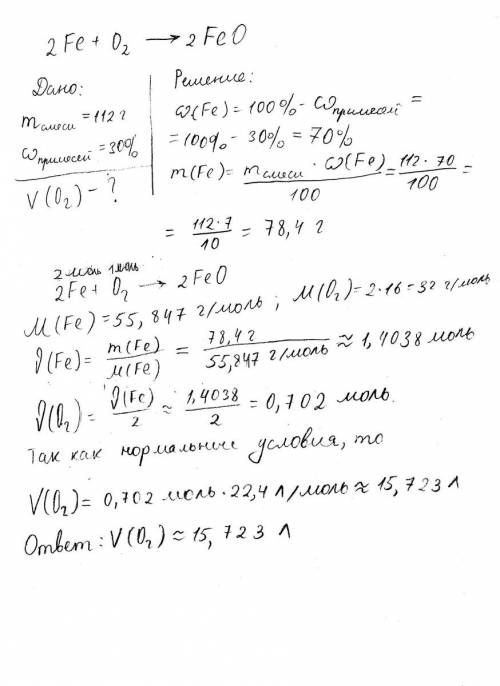 2Fe + O₂ → 2FeO
Дано:
mсмеси = 112 г
ωпримесей = 30%
V(O₂) - ?
Решение:
ω(Fe) = 100% - ωпримесей =
= 100% - 30% = 70%
m(Fe) = mсмеси · ω(Fe) / 100 = 112 · 70 / 100 =
= 112·7 / 10 = 78,4 г
2 моль 1 моль
2Fe + O₂ → 2FeO
M(Fe) = 55,847 г/моль ; M(O₂) = 2·16 = 32 г/моль
ν(Fe) = m(Fe) / M(Fe) = 78,4 г / 55,847 г/моль ≈ 1,4038 моль
ν(O₂) = ν(Fe) / 2 ≈ 1,4038 / 2 = 0,702 моль.
Так как нормальные условия, то
V(O₂) = 0,702 моль · 22,4 л/моль ≈ 15,723 л
Ответ: V(O₂) ≈ 15,723 л